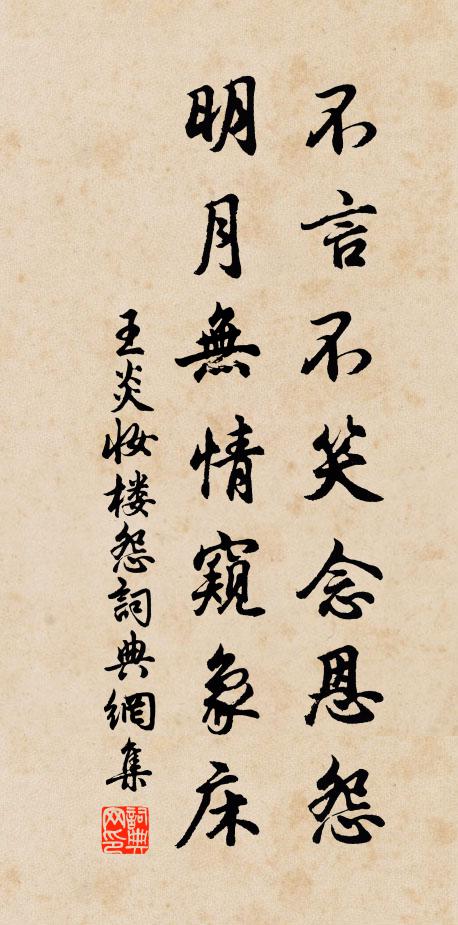 不言不笑念恩怨
明月無情窺象床
王炎妆楼怨詞典網集
詞典網印